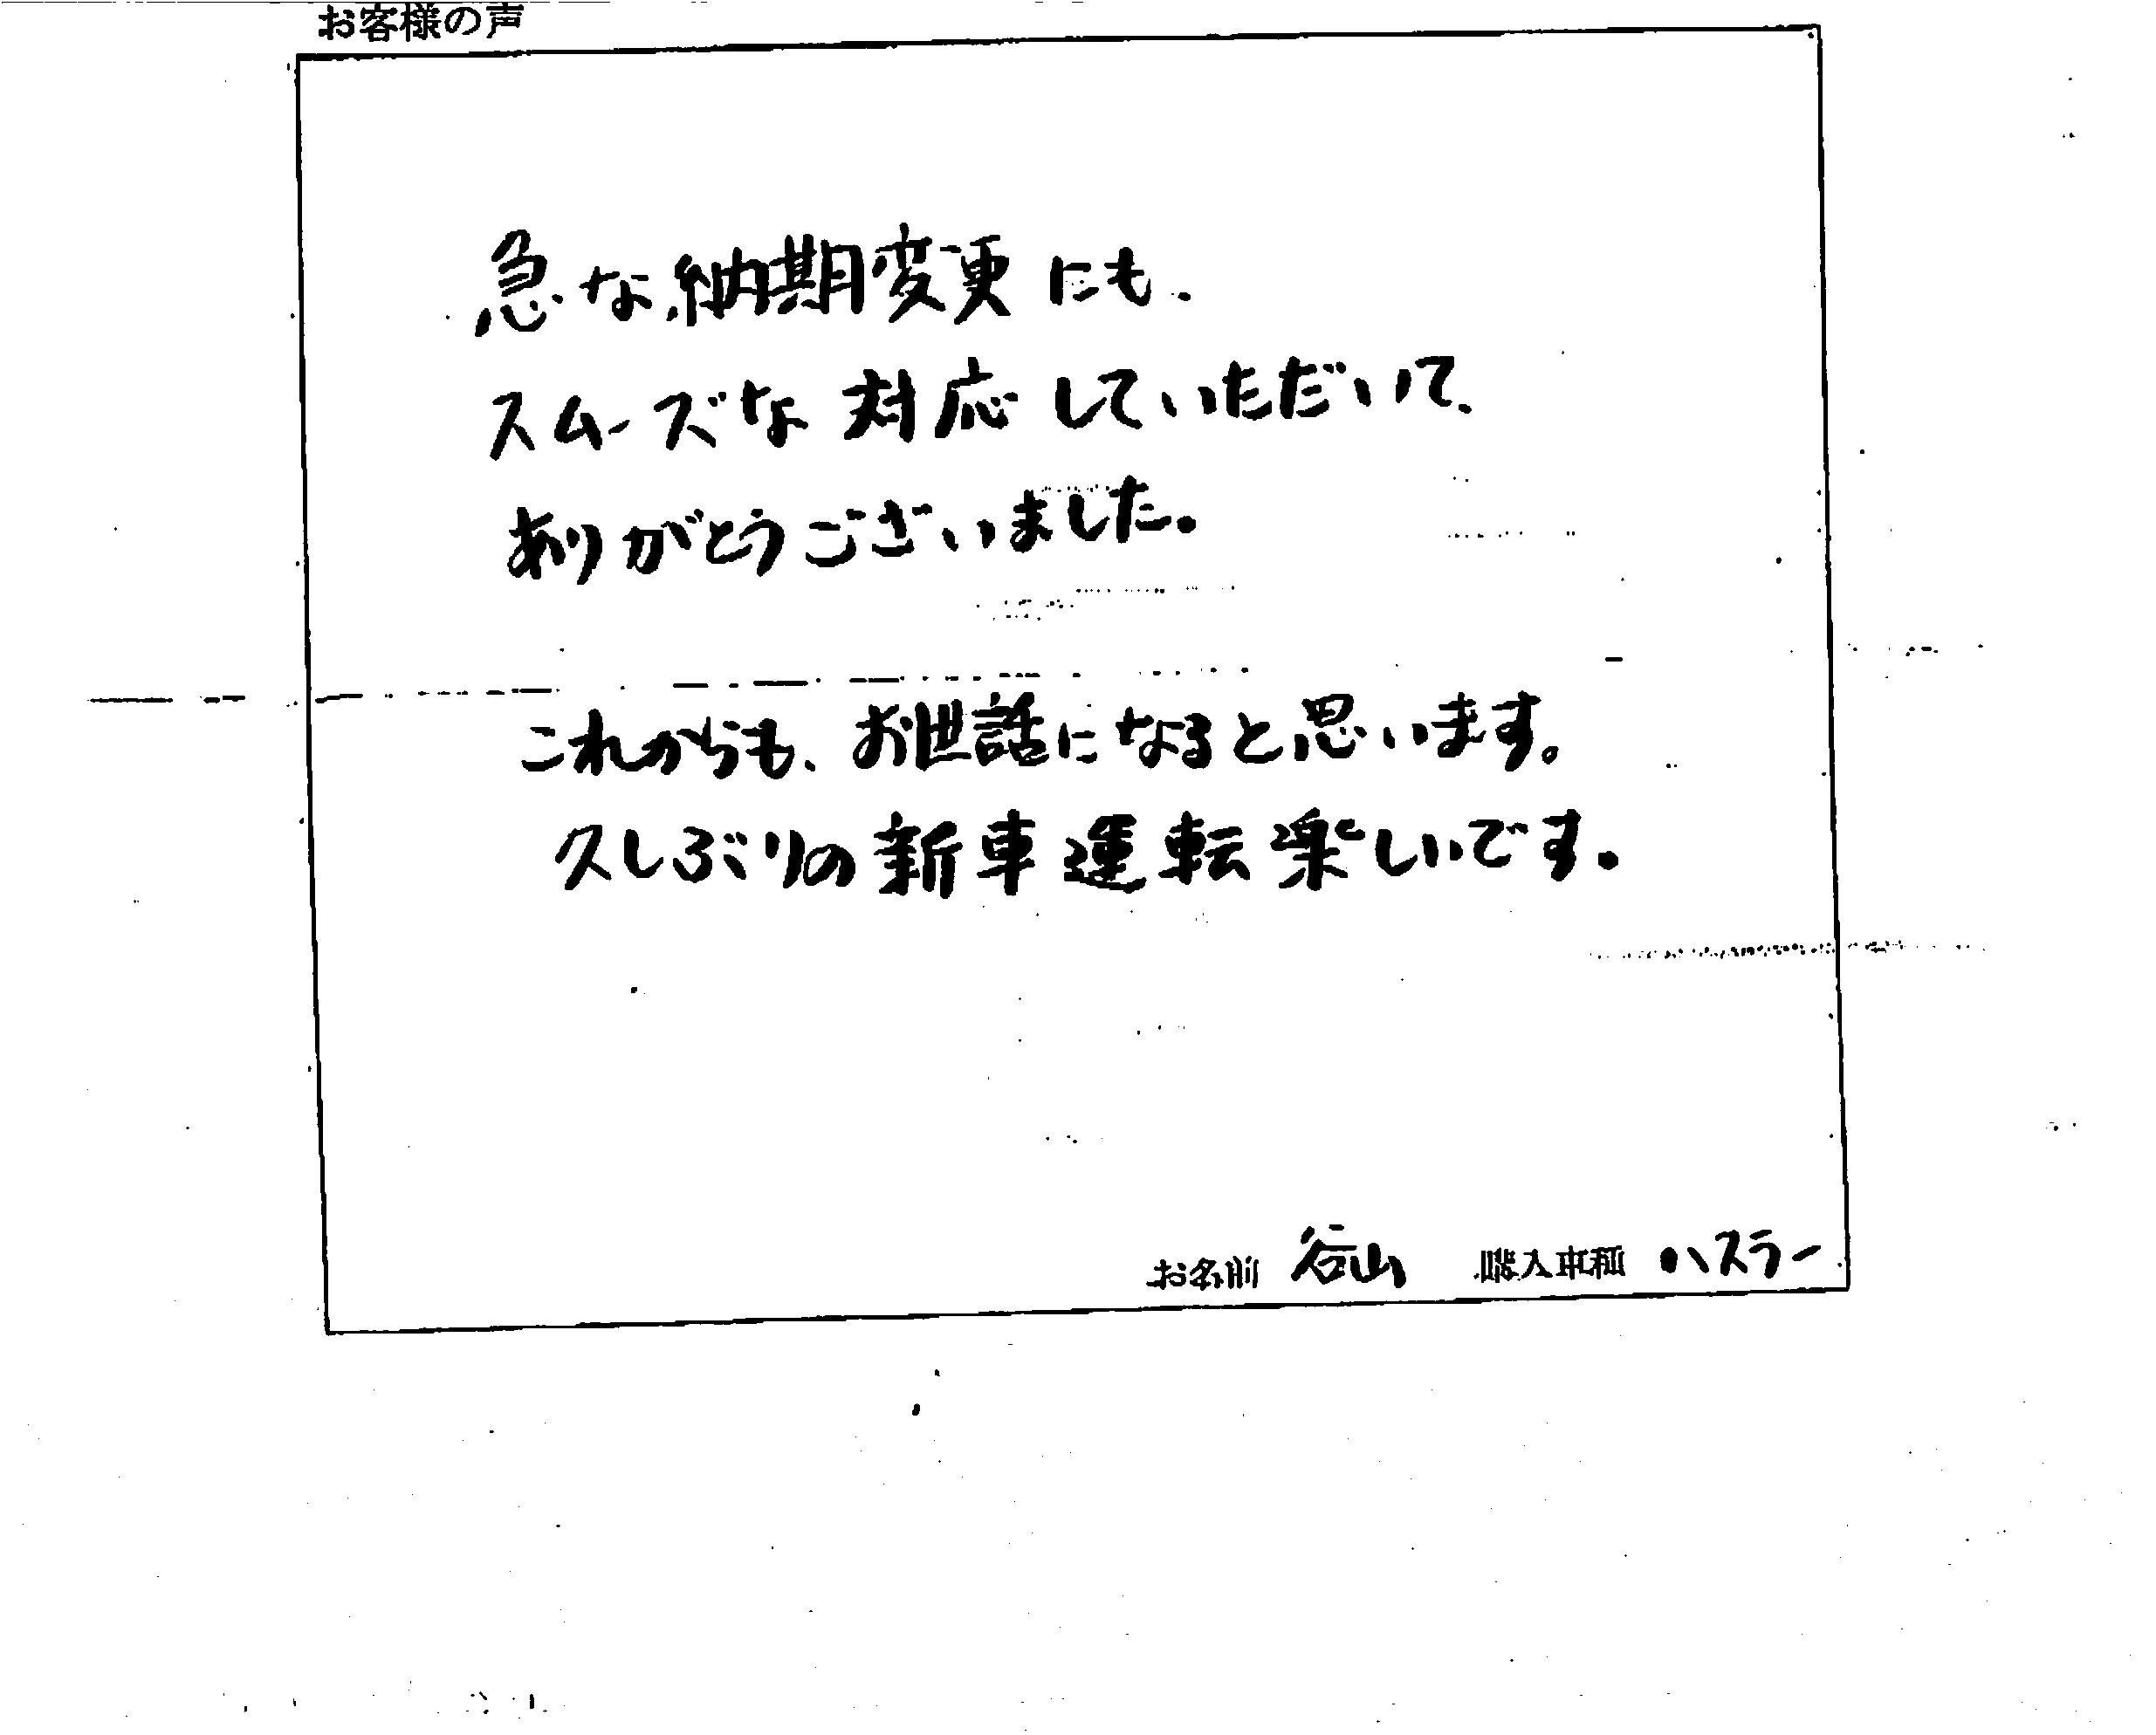 お客様の声
急な納期変更にも、
スムーズな対応していただいて、
ありがとうございました。
これからも、お世話になると思います。
久しぶりの新車運転楽しいです。
お名前 谷山 購入車種 ハスラー